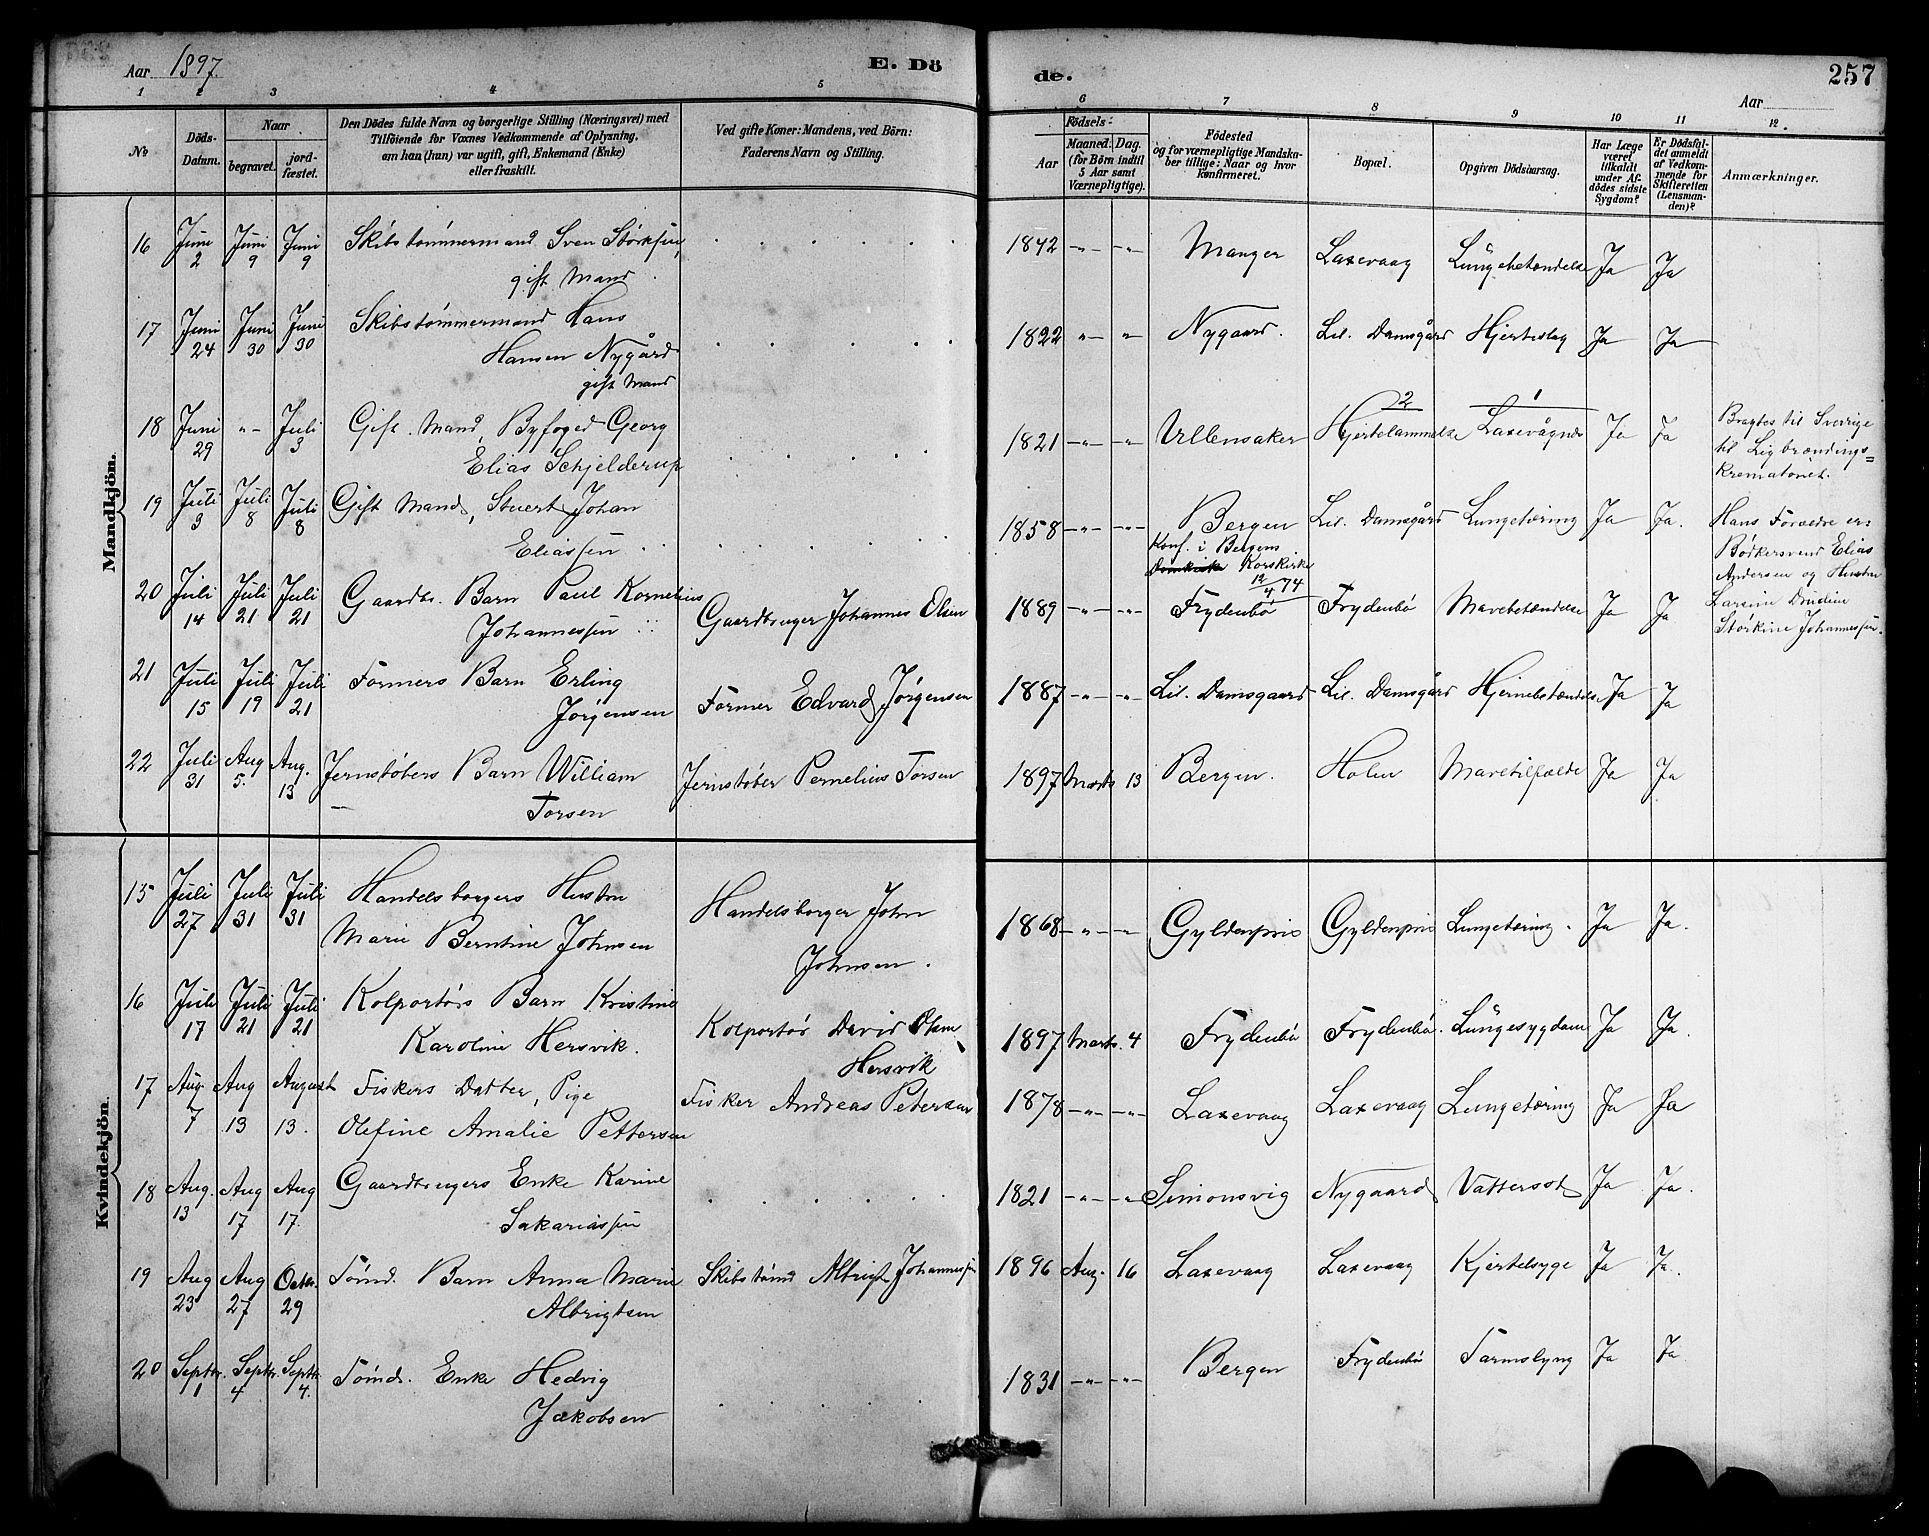 Aar 1897.
E. Döde.
257
Aar
1 2 3 4 5 6 7 8 9 10 11 12.
No.
Döds-Datum.
Naar
begravet.
jord-fæstet.
Den Dödes fulde Navn og borgerlige Stilling (Næringsvei) med
Tilföiende for Voxnes Vedkommende af Oplysning,
om han (hun) var ugift, gift, Enkemand (Enke)
eller fraskilt.
Ved gifte Koner: Mandens, ved Börn:
Faderens Navn og Stilling.
Födsels-
Aar
Maaned. Dag.
(for Börn indtil
5 Aar samt
Værnepligtige).
Födested
og for værnepligtige Mandska-
ber tillige: Naar og hvor
konfirmeret.
Bopæl.
Opgiven Dödsaarsag.
Har Læge
været
tilkaldt
under Af-
dödes sidste
Sygdom?
Er Dödsfal-
det anmeldt
af Vedkom-
mende for
Skifteretten
(Lensman-
den)?
Anmærkninger.
Mandkjön.
16 Juni 2 Juni 9 Juni 9 Skibstømmermand Sven Størksen, gift Mand 1842 -"- -"- Manger Laxevaag Lungebetændelse Ja Ja
17 Juni 24 Juni 30 Juni 30 Skibstømmermand Hans Hansen Nygård gift Mand 1822 -"- " Nygaard. Lil. Damsgård Hjerteslag Ja Ja
18 Juni 29 "- Juli 3 Gift Mand, Byfoged Georg Elias Schjelderup 1821 -"- -"- Ullensaker 2 Hjertelammelse 1 Laxevågnes Ja Ja Bragtes til Sverige til Ligbrændings= Krematoriet.
19 Juli 3 Juli 8 Juli 8 Gift Mand, Stuert Johan Eliassen 1858 -"- -"- Bergen Konf. i Bergens Domkirke Korskirke 12/4 74 Lil. Damsgård Lungetæring Ja Ja. Hans Forældre er: Bødkersvend Elias Andersen og Hustru Larsine Drudine Størkine Johannessen.
20 Juli 14 Juli 21 Juli 21 Gaardbr. Barn Paul Kornelius Johannessen Gaardbruger Johannes Olsen 1889 -"- -"- Frydenbø Frydenbø Mavebetændelse Ja Ja
21 Juli 15 Juli 19 Juli 21 Formers Barn Erling Jørgensen Former Edvard Jørgensen 1887 -"- -"- Lil. Damsgaard Lil. Damsgård Hjernebetændelse Ja Ja
22 Juli 31 Aug 5. Aug. 13 Jernstøbers Barn William Torsen Jernstøber Pernelius Torsen 1897 Marts 13 Bergen. Holen Mavetilfælde Ja Ja
Kvindekjön.
15 Juli 27 Juli 31 Juli 31 Handelsborgers Hustru Marie Berntine Johnsen Handelsborger John Johnsen. 1868 -"- -"- Gyldenpris Gyldenpris Lungetæring. Ja Ja.
16 Juli 17 Juli 21 Juli 21 Kolportørs Barn Kristine Karoline Hersvik. Kolportør David Olsen Hersvik 1897 Marts 4 Frydenbø Frydenbø. Lungesygdom Ja Ja.
17 Aug. 7 Aug 13 August 13. Fiskers Datter, Pige Olefine Amalie Pettersen Fisker Andreas Petersen 1878 -"- -"- Laxevaag Laxevaag Lungetæring Ja Ja
18 Aug. 13 Aug 17 Aug 17. Gaardbrugers Enke Karine Sakariassen 1821 -"- -"- Simonsvig Nygaard Vattersot Ja Ja.
19 Aug 23 Aug 27 Octbr. 29 Tømd. Barn Anna Marie Albrigtsen Skibstømd Albrigt Johannessen 1896 Aug. 16 Laxevaag Laxevaag Kjertelsyge Ja Ja.
20 Septbr. 1 Septbr. 4 Septbr. 4. Tømd. Enke Hedvig Jakobsen 1831 -"- -"- Bergen Frydenbø Tarmslyng Ja Ja